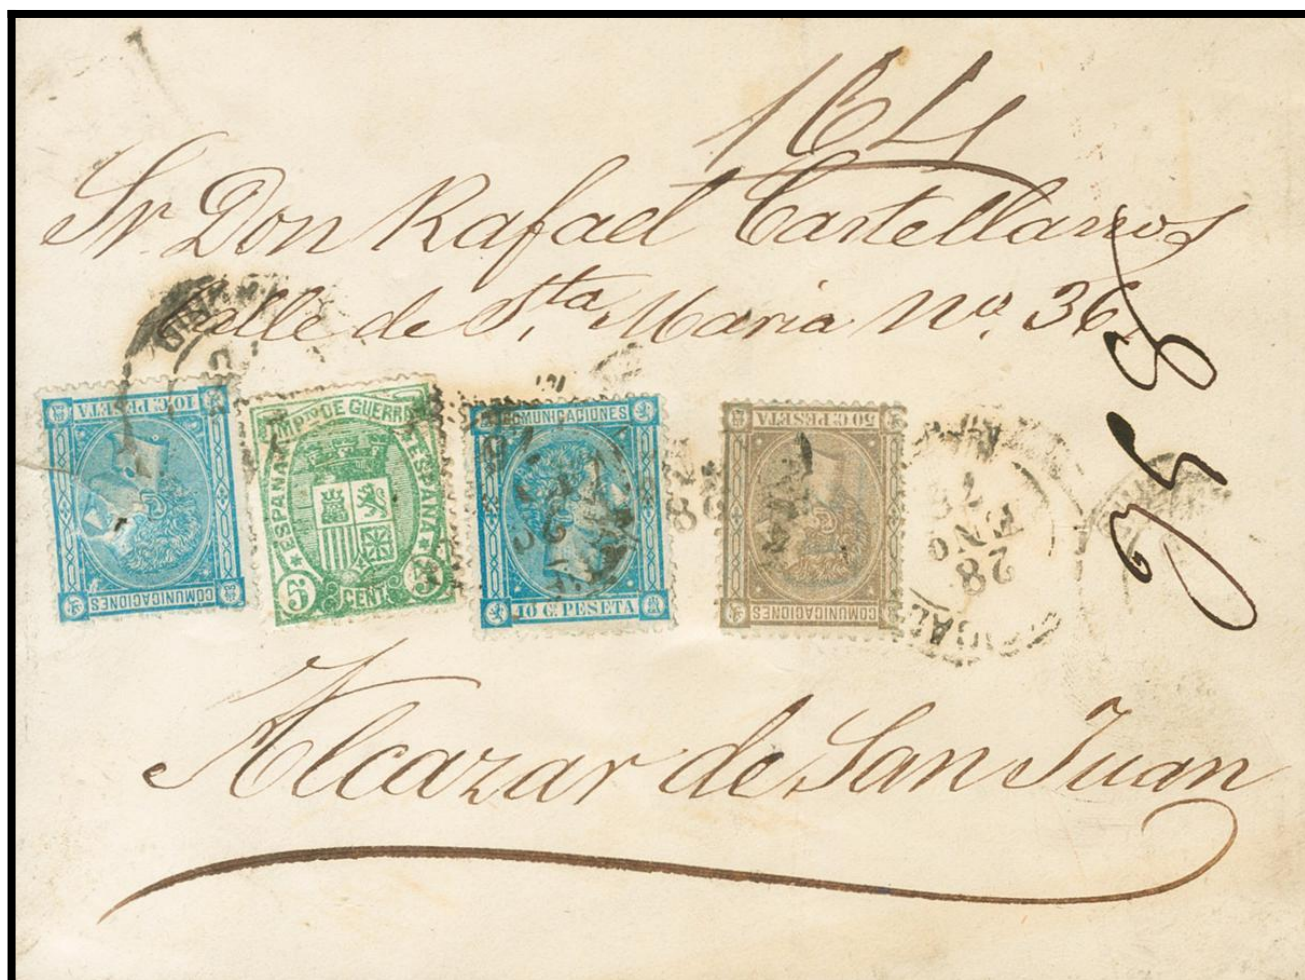 164
Sr Don Rafael Castellanos
Calle de Sta Maria No. 36,
10 Cs PESETA
COMUNICACIONES
IMPto DE GUERRA
ESPAÑA
ESPAÑA
5 CENT. 5
COMUNICACIONES
10 Cs PESETA
50 Cs PESETA
COMUNICACIONES
28
ENO
Alcazar de San Juan